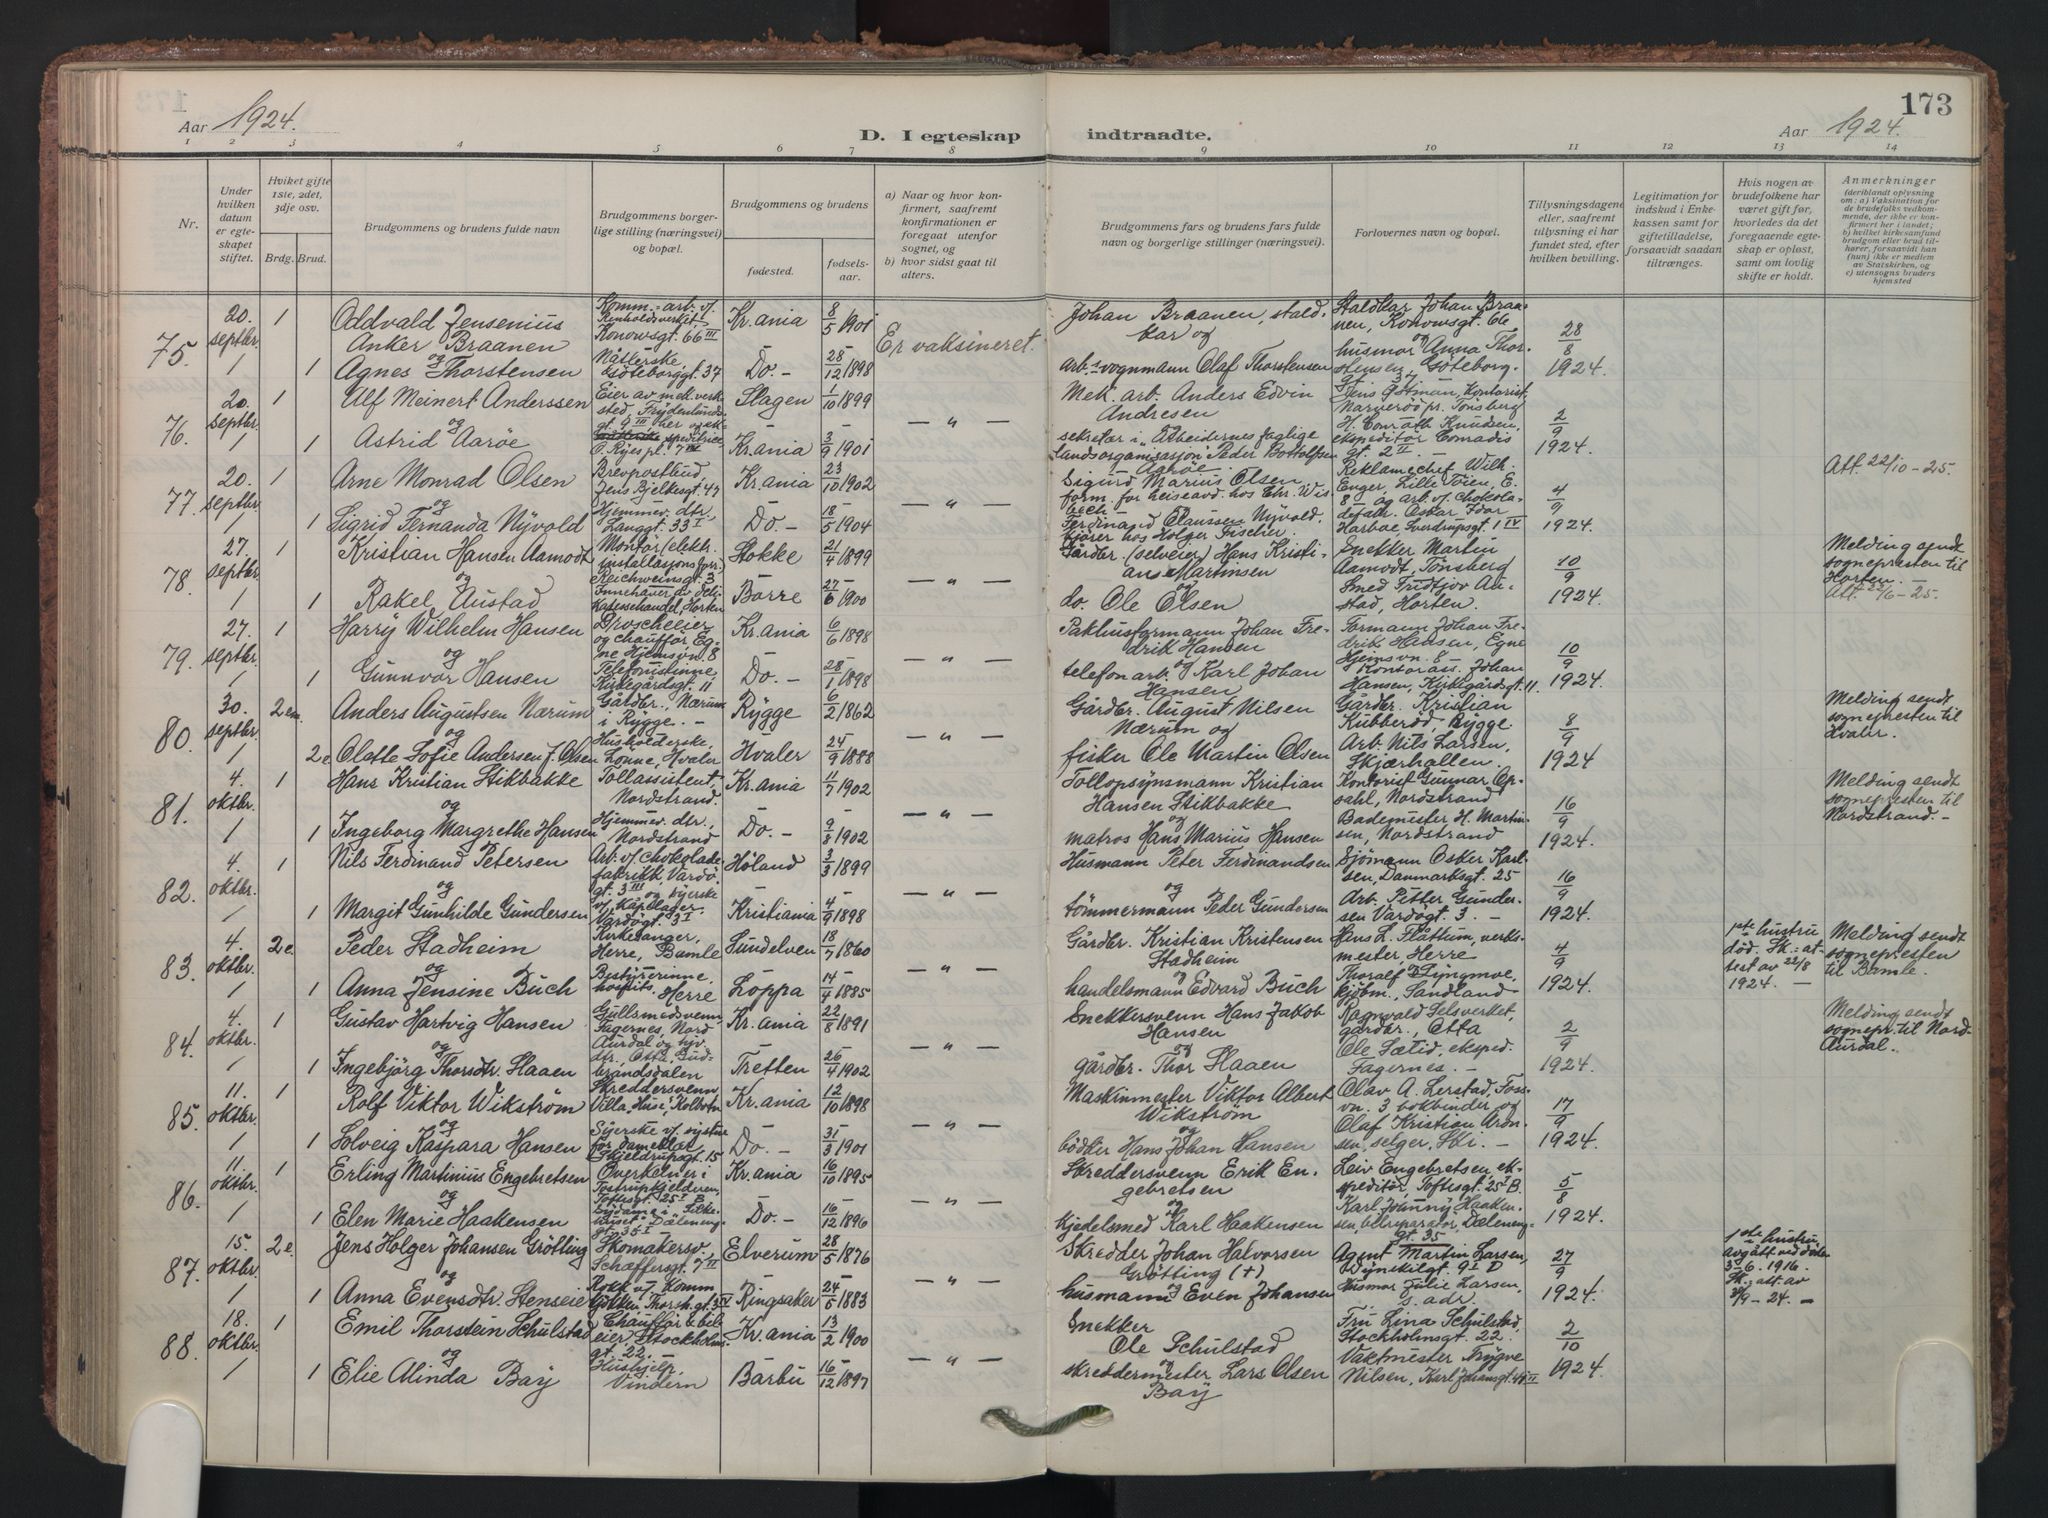 173
Aar 1924.
D. I egteskap indtraadte.
Aar 1924.
1 2 3 4 5 6 7 8 9 10 11 12 13 14
Nr.
Under hvilken datum er egteskapet stiftet.
Hviket gifte 1ste, 2det, 3dje osv.
Brdg. Brud.
Brudgommens og brudens fulde navn
Brudgommens borgerlige stilling (næringsvei) og bopæl.
Brudgommens og brudens
fødested.
fødselsaar.
a) Naar og hvor konfirmert, saafremt konfirmationen er foregaat utenfor sognet, og
b) hvor sidst gaat til alters.
Brudgommens fars og brudens fars fulde navn og borgerlige stillinger (næringsvei).
Forlovernes navn og bopæl.
Tillysningsdagene eller, saafremt tillysning ei har fundet sted, efter hvilken bevilling.
Legitimation for indskud i Enkekassen samt for giftetilladelse, forsaavidt saadan tiltrænges.
Hvis nogen av brudefolkene har været gift før, hvorledes da det foregaaende egteskap er opløst, samt om lovlig skifte er holdt.
Anmerkninger
(deriblandt oplysning om: a) Vaksination for de brudefolks vedkommende, der ikke er konfirmert her i landet; b) hvilket kirkesamfund brudgom eller brud tilhører, forsaavidt han (hun) ikke er medlem av Statskirken, og c) utensogns bruders hjemsted
75. 20. septbr. 1 Oddvald Jensenius Anker Braanen
Komm. arb. v. Renholdsverket, Konowsgt. 66 III Kr.ania 8/5 1901 Er vaksineret.
Johan Braanen, staldkar og
Staldkar Johan Braanen, Konowsgt. 66 28/8 1924.
og
1 Agnes Thorstensen
Måtterske Göteborggt. 37 Do. - 28/12 1898
arb. vognmann Olaf Thorstensen
husmor Anna Thorstensen, Göteborggt. 37
76. 20. septbr. 1 Alf Meinert Anderssen
Eier av mek. verksted, Frydenlundsgt. 9 III Slagen 1/10 1899 - " -
Mek. arb. Anders Edvin Andresen
Jens Götman, Kontorist, Narverödpr. Tönsberg 2/9 1924.
og
1 Astrid Aaröe
speditrice O. Ryes pl. 7 Kr.ania 3/9 1901
sekretær i "Arbeidernes faglige landsorganisasjon" Peder Bottolfsen Aaröe
H. Conrath Knudsen, ekspeditör Conradis gt. 2 II
77. 20. septbr. 1 Arne Monrad Olsen
Brevpostbud, Jens Bjelkesgt. 47 Kr.ania 23/10 1902 - " -
Sigurd Marius Olsen form. for heiseavd. hos Chr. Wisbech
Reklamechef Wilh. Enger, Lille Töien, E. 8 4/9 1924.
Att. 22/10-25.
og
1 Sigrid Fernanda Nyvold
Hjemmev. dtr. Langgt. 33 I Do. - 18/5 1904
Ferdinand Claussen Nyvold, kjörer hos Holger Fischer.
og arb. v. chokoladefabr. Oskar Idar Harboe Sverdrupsgt. 1 IV
78. 27. septbr. 1 Kristian Hansen Aamodt
Montör (elektr. installasjonsforr.) Reichweinsgt. 3 Stokke 21/4 1899 - " -
Gårdbr. (selveier) Hans Kristians Martinsen
Snekker Martin Aamodt, Tönsberg 10/9 1924.
Melding sendt sognepresten til Horten. -
Att. 22/6-25.
og
1 Rakel Austad
Innehaver av delikatessehandel, Horten Borre 27/6 1900
do. Ole Olsen
Smed Fridtjov Austad, Horten.
79. 27. septbr. 1 Harry Wilhelm Hansen
Droscheeier og chauffør, Egne Hjemsvn. 8 Kr.ania 6/6 1898 - " -
Pakhusformann Johan Fredrik Hansen
Formann Johan Fredrik Hansen, Egne Hjemsvn. 8 - 10/9 1924.
og
1 Gunnvor Hansen
Telefonistinne, Kirkegårdsgt. 11 Do. - 28/1 1898
telefonarb. Karl Johan Hansen
Kontorass. Johan Hansen, Kirkegårdsgt. 11.
80. 30. septbr. 2 em. Anders Augustsen Nærum
Gårdbr., Nærum i Rygge. - Rygge 6/2 1862 - " -
Gårdbr. August Nilsen Nærum og
Gårdbr. Kristian Kubberöd, Rygge. 8/9 1924
Melding sendt sognepresten til Hvaler.
og
2 e Olette Sofie Andersen f. Olsen
Husholderske, Lönne, Hvaler Hvaler 24/9 1888
fisker Ole Martin Olsen
Arb. Nils Larsen, Skjærhallen.
81. 4. oktbr. 1 Hans Kristian Stikbakke
Tollassistent, Nordstrand. Kr.ania 11/7 1902 - " -
Tollopsynsmann Kristian Hansen Stikbakke
Kontorief Gunnar Opsahl, Nordstrand 16/9 1924.
Melding sendt sognepresten til Nordstrand. -
og
1 Ingeborg Margrethe Hansen
Hjemmev. dtr., Nordstrand Do. - 9/8 1902
matros Hans Marius Hansen
Bademester H. Martinsen, Nordstrand
82. 4. oktbr. 1 Nils Ferdinand Petersen
Arb. v. chokoladefabrikk, Vardögt. 3 III Höland 3/3 1899 - " -
Husmann Peter Ferdinandsen
Sjömann Oskar Karlsen, Danmarksgt. 25 16/9 1924.
og
1 Margit Gunhilde Gundersen
og syerske v. kåpelager, Vardögt. 3 I Kristiania 4/9 1898
tömmermann Peder Gundersen
Arb. Petter Gundersen Vardögt. 3. -
83. 4. oktbr. 2 e. Peder Stadheim
Kirkesanger, Herre, Bamle Sundelven 18/7 1860 - " -
Gårdbr. Kristian Kristensen Stadheim
Hens L. Flåttum, verksmester, Herre 4/9 1924.
1ste hustru död. Sk. attest av 22/8 1924. -
Melding sendt sognepresten til Bamle.
og
1 Anna Jensine Buch
Bestyrerinne, hospits, Herre Loppa 14/4 1885
handelsmann Edvard Buch
Thoralf Lyngmoe, kjöbm., Sandland
84. 4. oktbr. 1 Gustav Hartvig Hansen
Gullsmedsvenn, Fagernes, Nord Aurdal Kr.ania 22/8 1891 - " -
Snekkersvenn Hans Jakob Hansen
Ragnvald Selsverket, gårdbr., Otta 2/9 1924.
Melding sendt sognepr. til Nord-Aurdal.
og
1 Ingebjörg Thorsdtr. Haaen
og hjv. dtr., Otta, Gudbrandsdalen Tretten 26/4 1902
gårdbr. Thor Haaen
Ole Sætid, eksped. Fagernes. -
85. 11. oktbr. 1 Rolf Viktor Wikström
Skreddersvenn Villa "Huse", Kolbotn Kr.ania 12/10 1898 - " -
Maskinmester Viktor Albert Wikström
Olav A. Lerstad, Fossvn. 3 bokbinder og 17/9 1924.
og
1 Solveig Kaspara Hansen
Syerske v. systue for dameklær, Skjeldrupsgt. 15 Do. - 31/3 1901
bödker Hans Johan Hansen
Olaf Kristian Aronsen, selger, Ski. -
86. 11. oktbr. 1 Erling Martinius Engebretsen
Overkelner i Tostrupkjelderen, Toftesgt. 25 I B. Kr.ania 16/10 1895 - " -
Skreddersvenn Erik Engebretsen
Leiv Engebretsen, ekspeditör, Toftesgt. 25 I B. 5/8 1924.
og
1 Elen Marie Haakensen
Sydame i "Silkehuset", Dælenenggt. 35 I Do. - 16/12 1896
kjedelsmed Karl Haakensen
Karl Johnny Haakensen, bilreparatör, Dælenenggt. 35
87. 15. oktbr. 2 e. Jens Holger Johansen Grötting
Skomakersv. Schæffersgt. 7 II Elverum 28/5 1876 - " -
Skredder Johan Halvorsen Grötting (+)
Agent Martin Larsen, Dynekilgt. 9 I D 27/9 1924.
1ste hustru avgått ved döden 3/6. 1916. Sk. att. av 24. -
og
1 Anna Evensdtr. Stenseie
Kokk. v. Komm. kjökken, Thorsh. gt. 3 IV Ringsaker 24/5 1883
husmann Even Johansen
Husmor Julie Larsen, s. adr.
88. 18. oktbr. 1 Emil Thorstein Schulstad
Chauffør & bileier, Stockholmsgt. 22. - Kr.ania 13/2 1900 - " -
Snekker Ole Schulstad
Fru Lina Schulstad, Stockholmsgt. 22. 2/10 1924.
og
1 Elie Alinda Bay
Hushjelp, Vindern Barbu 16/12 1897
skreddermester Lars Olsen Bay
Vaktmester Trygve Nilsen, Karl Johansgt. 45 II